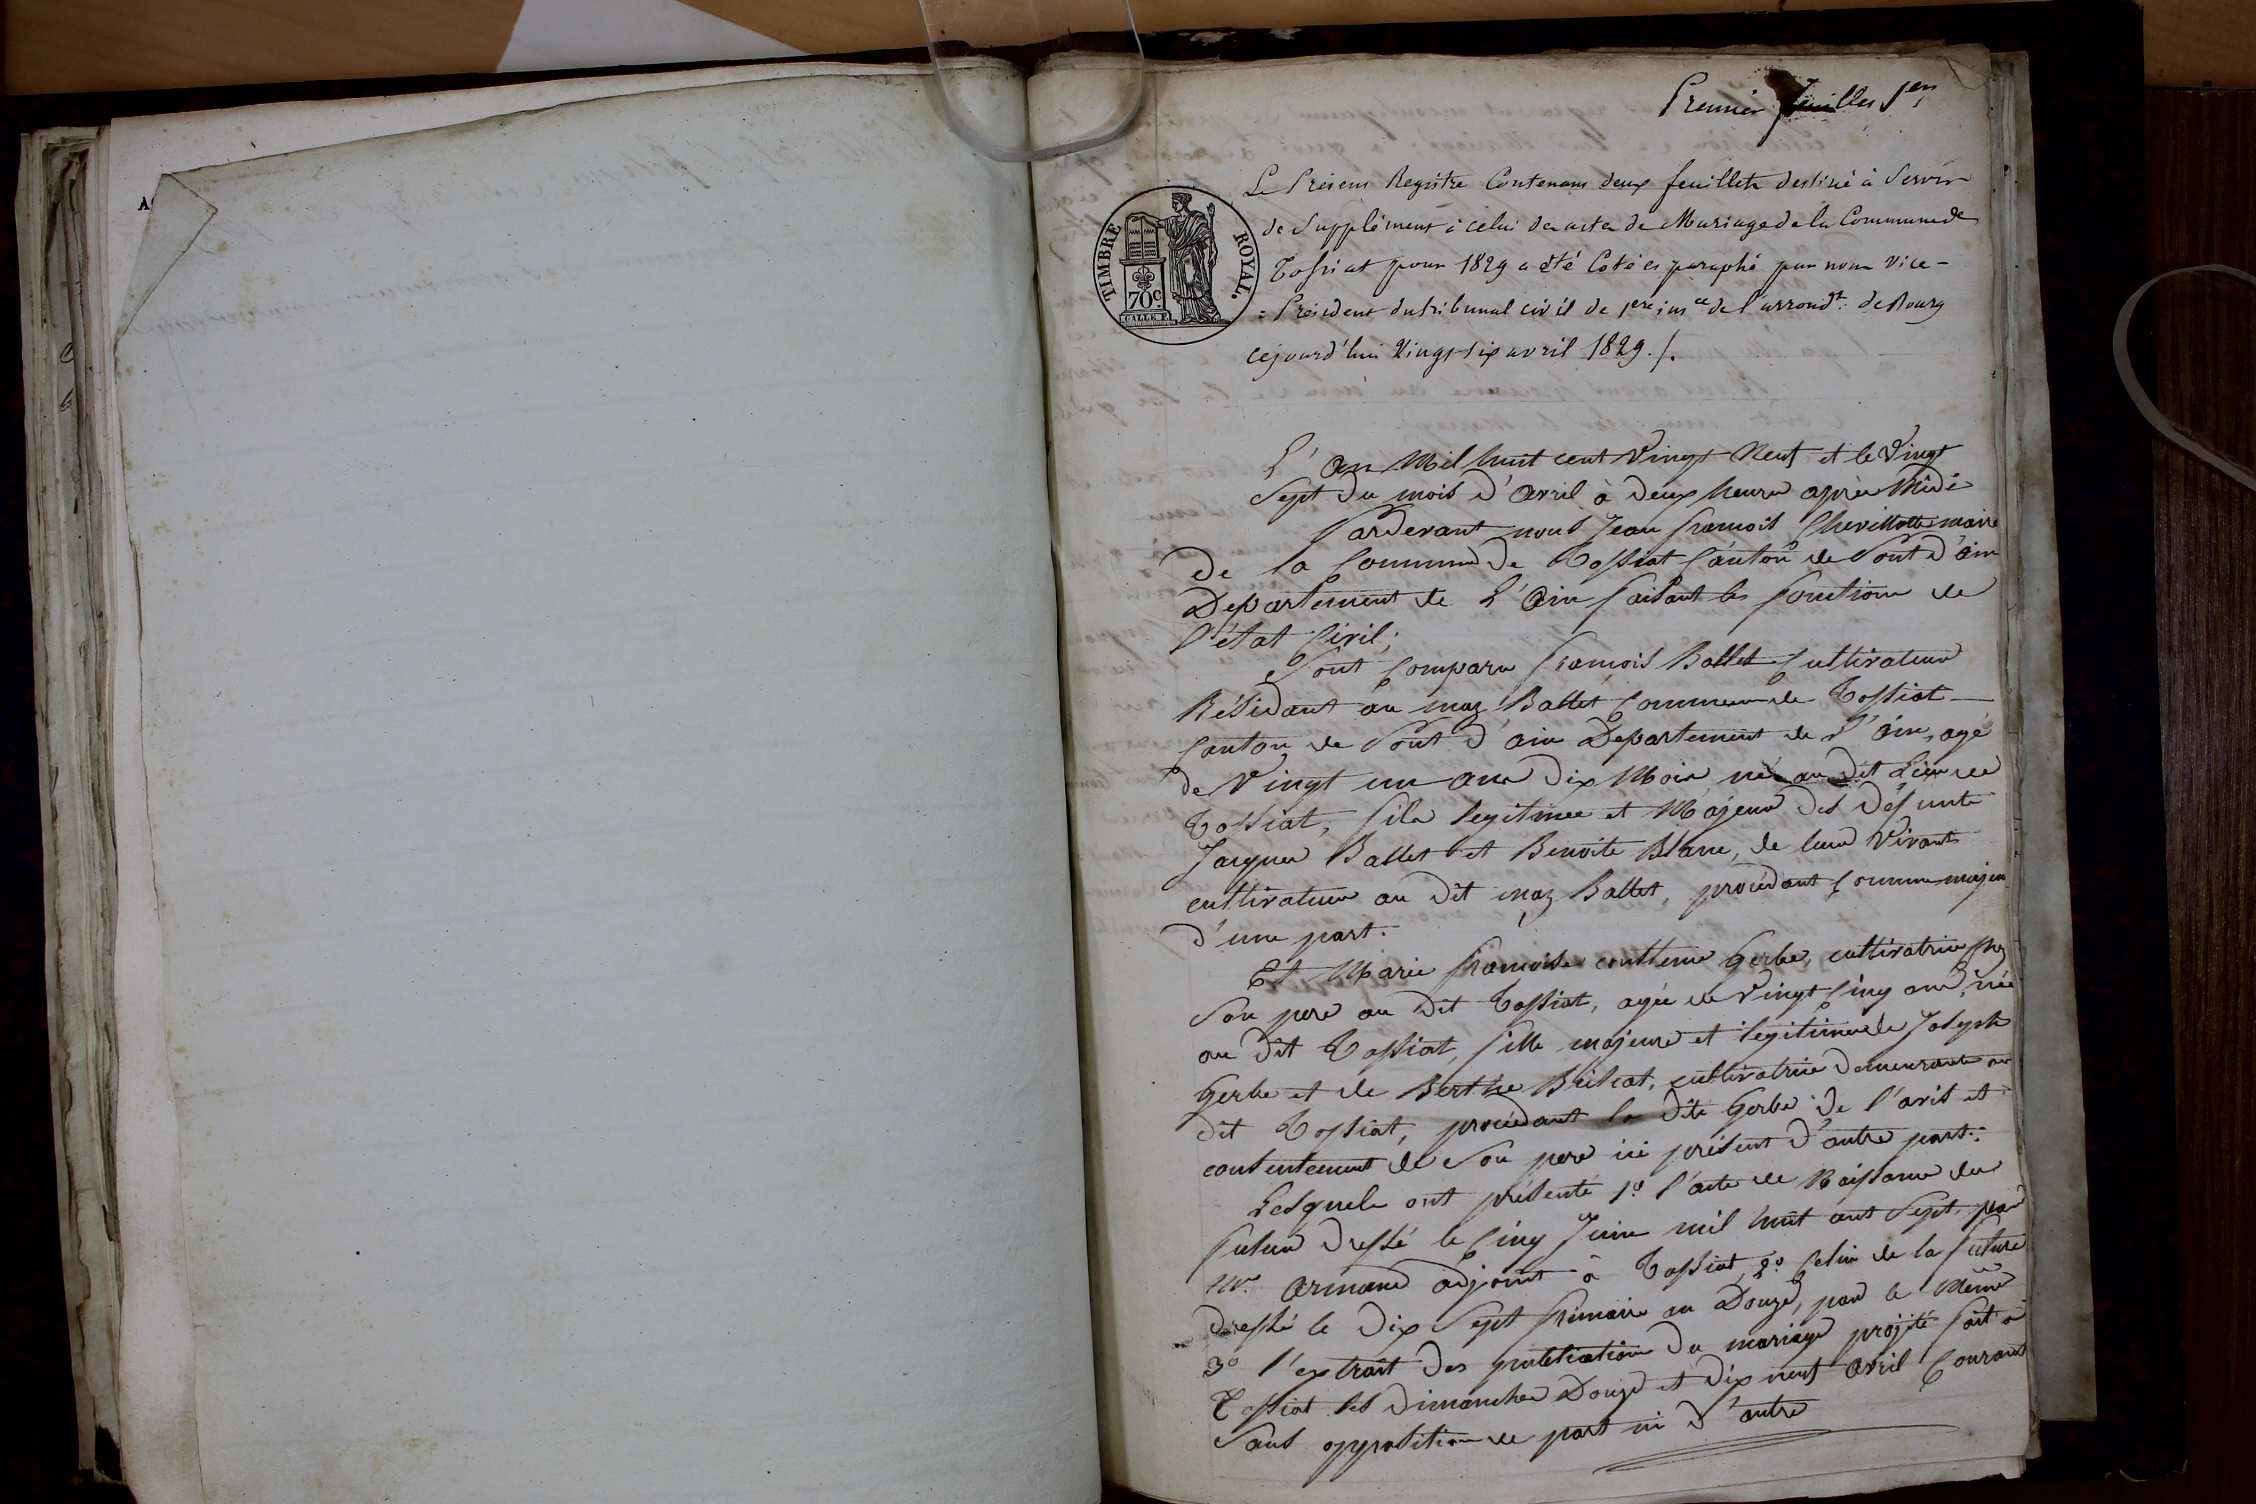 Premier feuillet 1er
Le Présent Registre Contenant deux feuillets destiné à Servir
de Supplément à celui des actes de Mariage de la Commune de
Tossiat pour 1829 a été Coté et paraphé par nous Vice-
= Président du tribunal civil de 1ere insce de l'arrondt. de Bourg
cejourd'hui Vingt-six avril 1829./.
TIMBRE ROYAL.
70c
L'an Mil huit cent Vingt Neuf et le Vingt
Sept du mois d'avril à deux heures après Midi
Pardevant nous Jean françois Chevillotte maire
de la Commune de Tossiat Canton de Pont d'ain
Departement de L'ain faisant les fonctions de
l'état Civil;
Sont Comparu françois Ballet Cultivateur
Résidant au maz Ballet Commune de Tossiat
Canton de Pont d'ain Departement de L'ain, agé
de Vingt un ans dix Mois né au dit Lieu de
Tossiat, fils legitime et Majeur des défunts
Jacques Ballet et Benoite Blanc, de leurs Vivants
cultivateurs au dit maz Ballet, procédant comme majeur
d'une part.
Et Marie françoise Gerbe, cultivatrice chez
Son pere au dit Tossiat, agée de Vingt Cinq ans, née
au dit Tossiat, fille majeure et legitime de Joseph
Gerbe et de Berthe Brilat, cultivatrice demeurants au
dit Tossiat, procédant la dite Gerbe de l'avis et
consentement de Son pere ici présent d'autre part.
Lesquels ont présenté 1º l'acte de Naissance du
futur dressé le Cinq Juin mil huit cent Sept, par
Mr. Armand adjoint à Tossiat, 2º Celui de la future
dressé le dix Sept frimaire an Douze, par le Même
3º l'extrait des publications du mariage projeté fait à
Tossiat les dimanches Douze et dix neuf avril Courant
Sans opposition de part ni d'autre